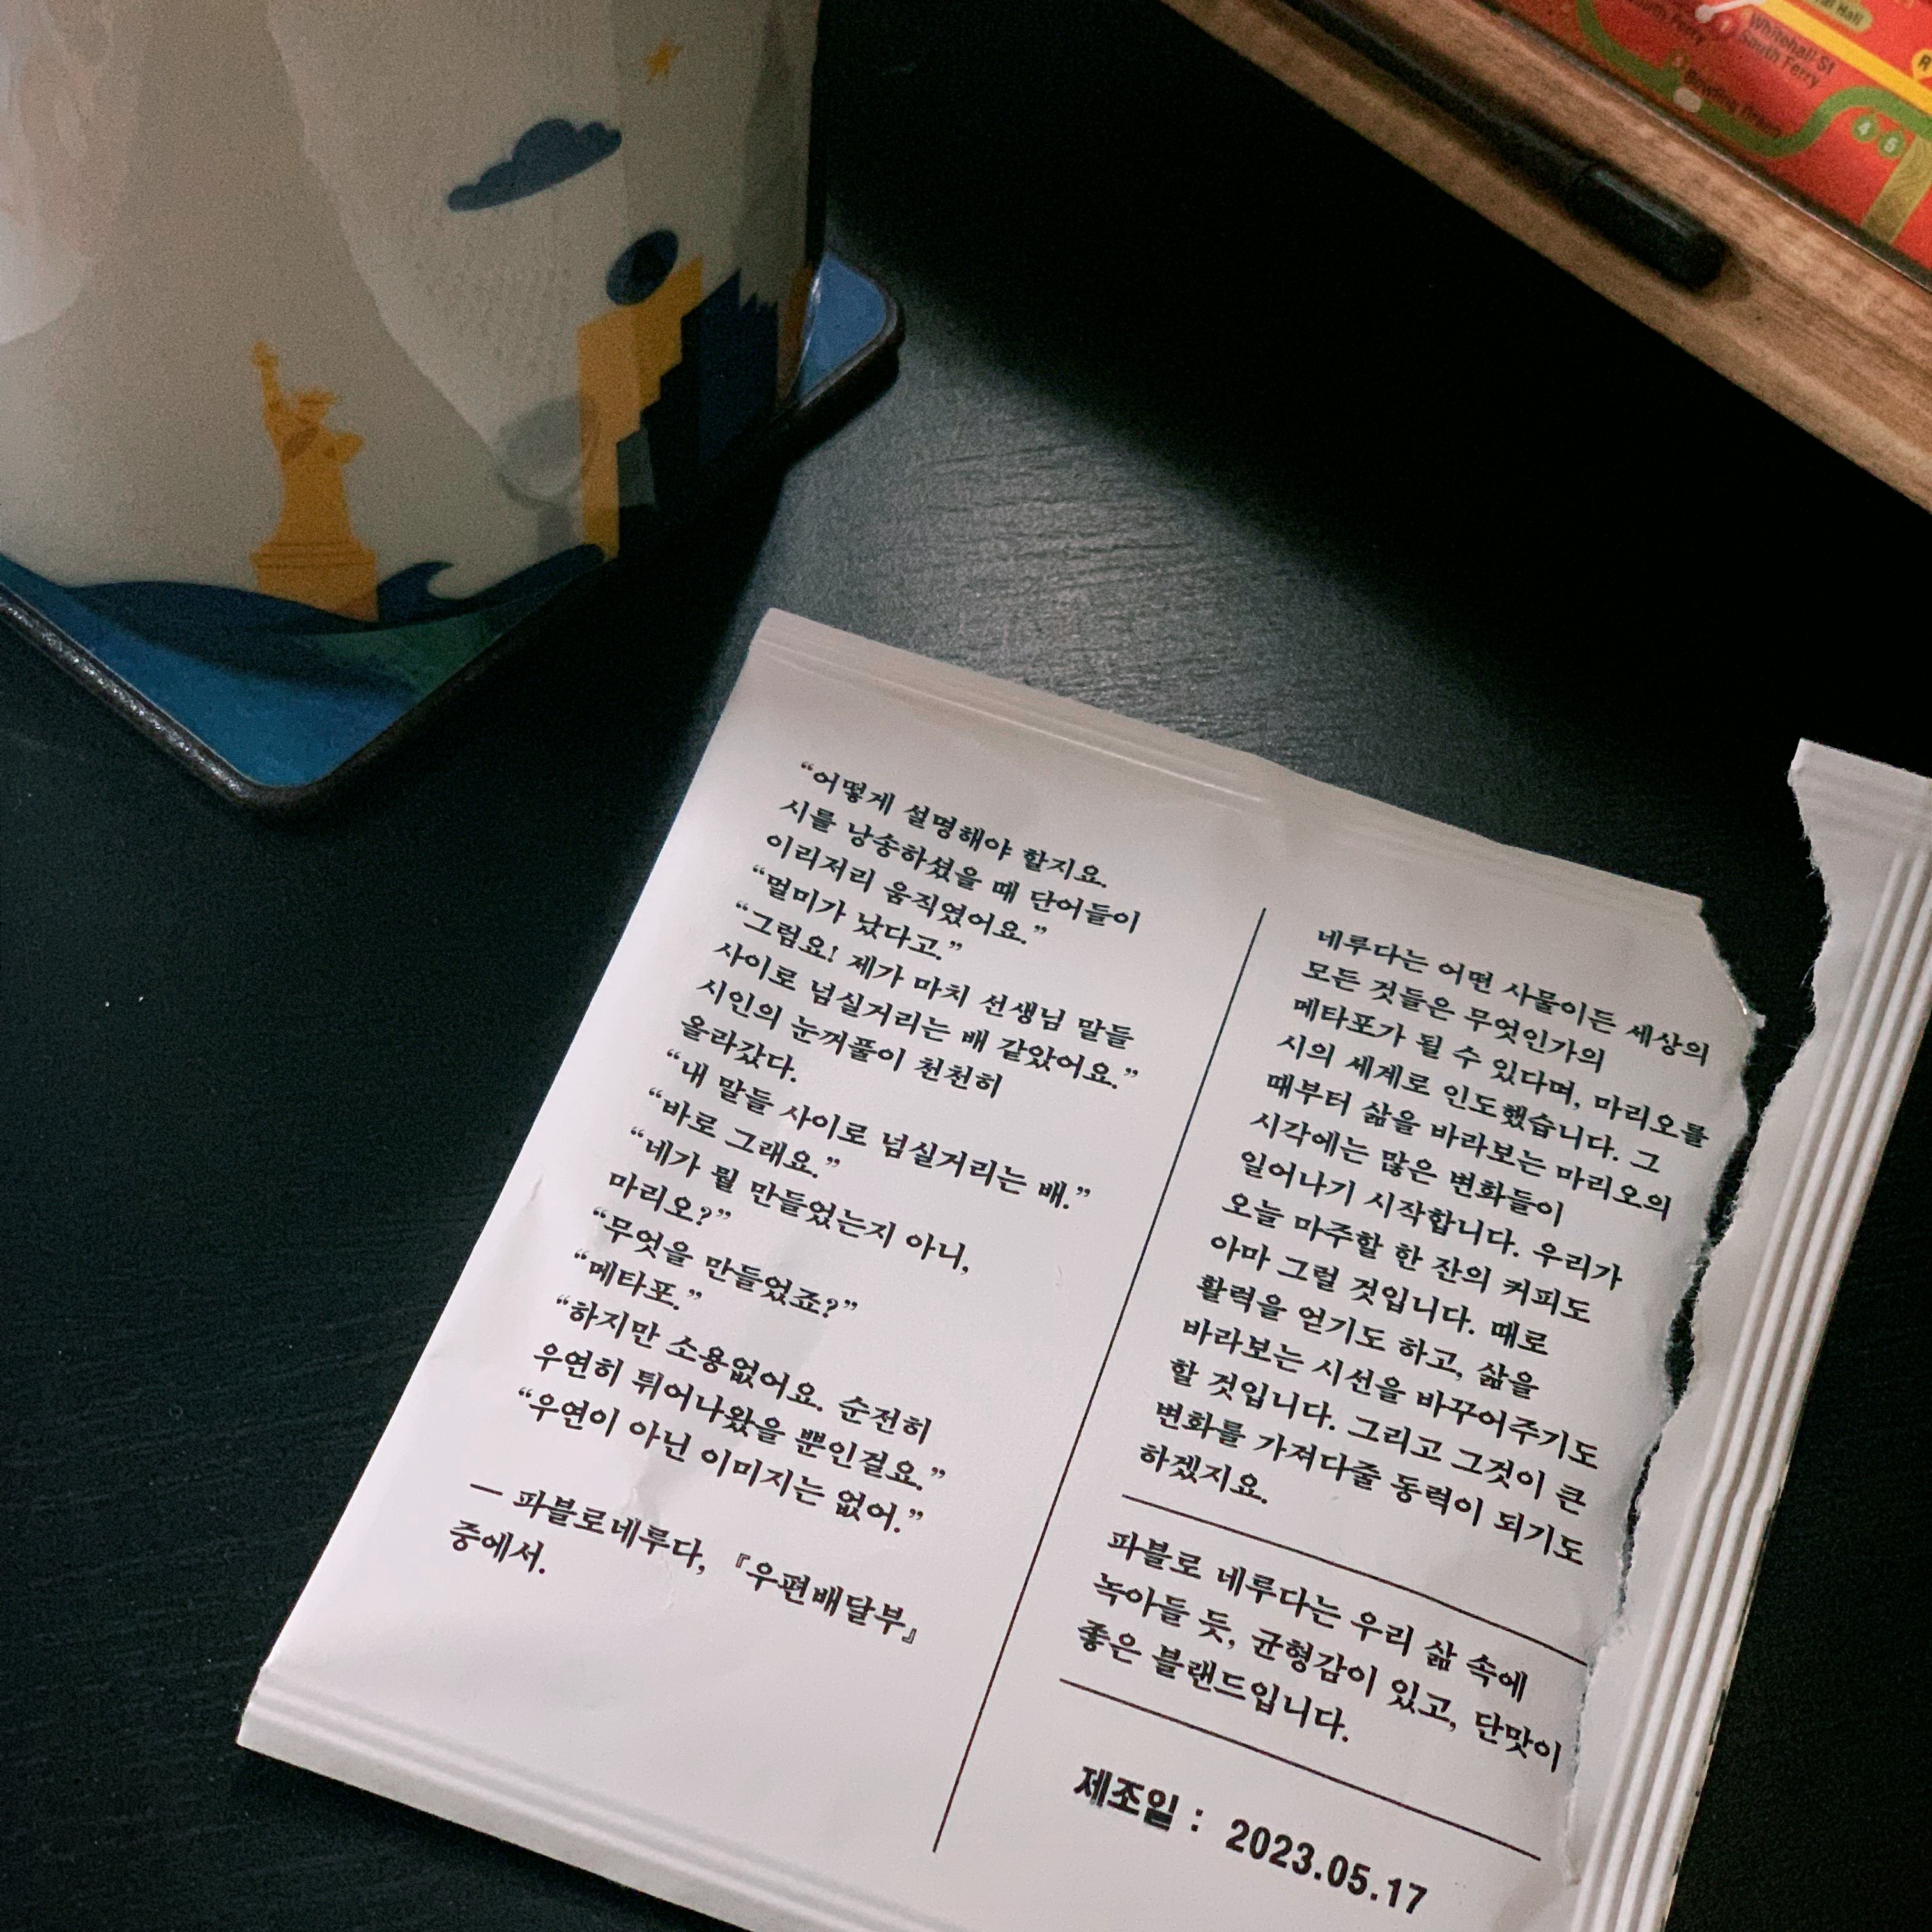 “어떻게 설명해야 할지요.
시를 낭송하셨을 때 단어들이
이리저리 움직였어요.”
“멀미가 났다고.”
“그럼요! 제가 마치 선생님 말들
사이로 넘실거리는 배 같았어요.”
시인의 눈꺼풀이 천천히
올라갔다.
“내 말들 사이로 넘실거리는 배.”
“바로 그래요.”
“네가 뭘 만들었는지 아니,
마리오?”
“무엇을 만들었죠?”
“메타포.”
“하지만 소용없어요. 순전히
우연히 튀어나왔을 뿐인걸요.”
“우연이 아닌 이미지는 없어.”
— 파블로네루다, 『우편배달부』
중에서.
네루다는 어떤 사물이든 세상의
모든 것들은 무엇인가의
메타포가 될 수 있다며, 마리오를
시의 세계로 인도했습니다. 그
때부터 삶을 바라보는 마리오의
시각에는 많은 변화들이
일어나기 시작합니다. 우리가
오늘 마주할 한 잔의 커피도
아마 그럴 것입니다. 때로
활력을 얻기도 하고, 삶을
바라보는 시선을 바꾸어주기도
할 것입니다. 그리고 그것이 큰
변화를 가져다줄 동력이 되기도
하겠지요.
파블로 네루다는 우리 삶 속에
녹아들 듯, 균형감이 있고, 단맛이
좋은 블랜드입니다.
제조일 : 2023.05.17
Whitehall St
South Ferry
Bowling Green
4 5
R